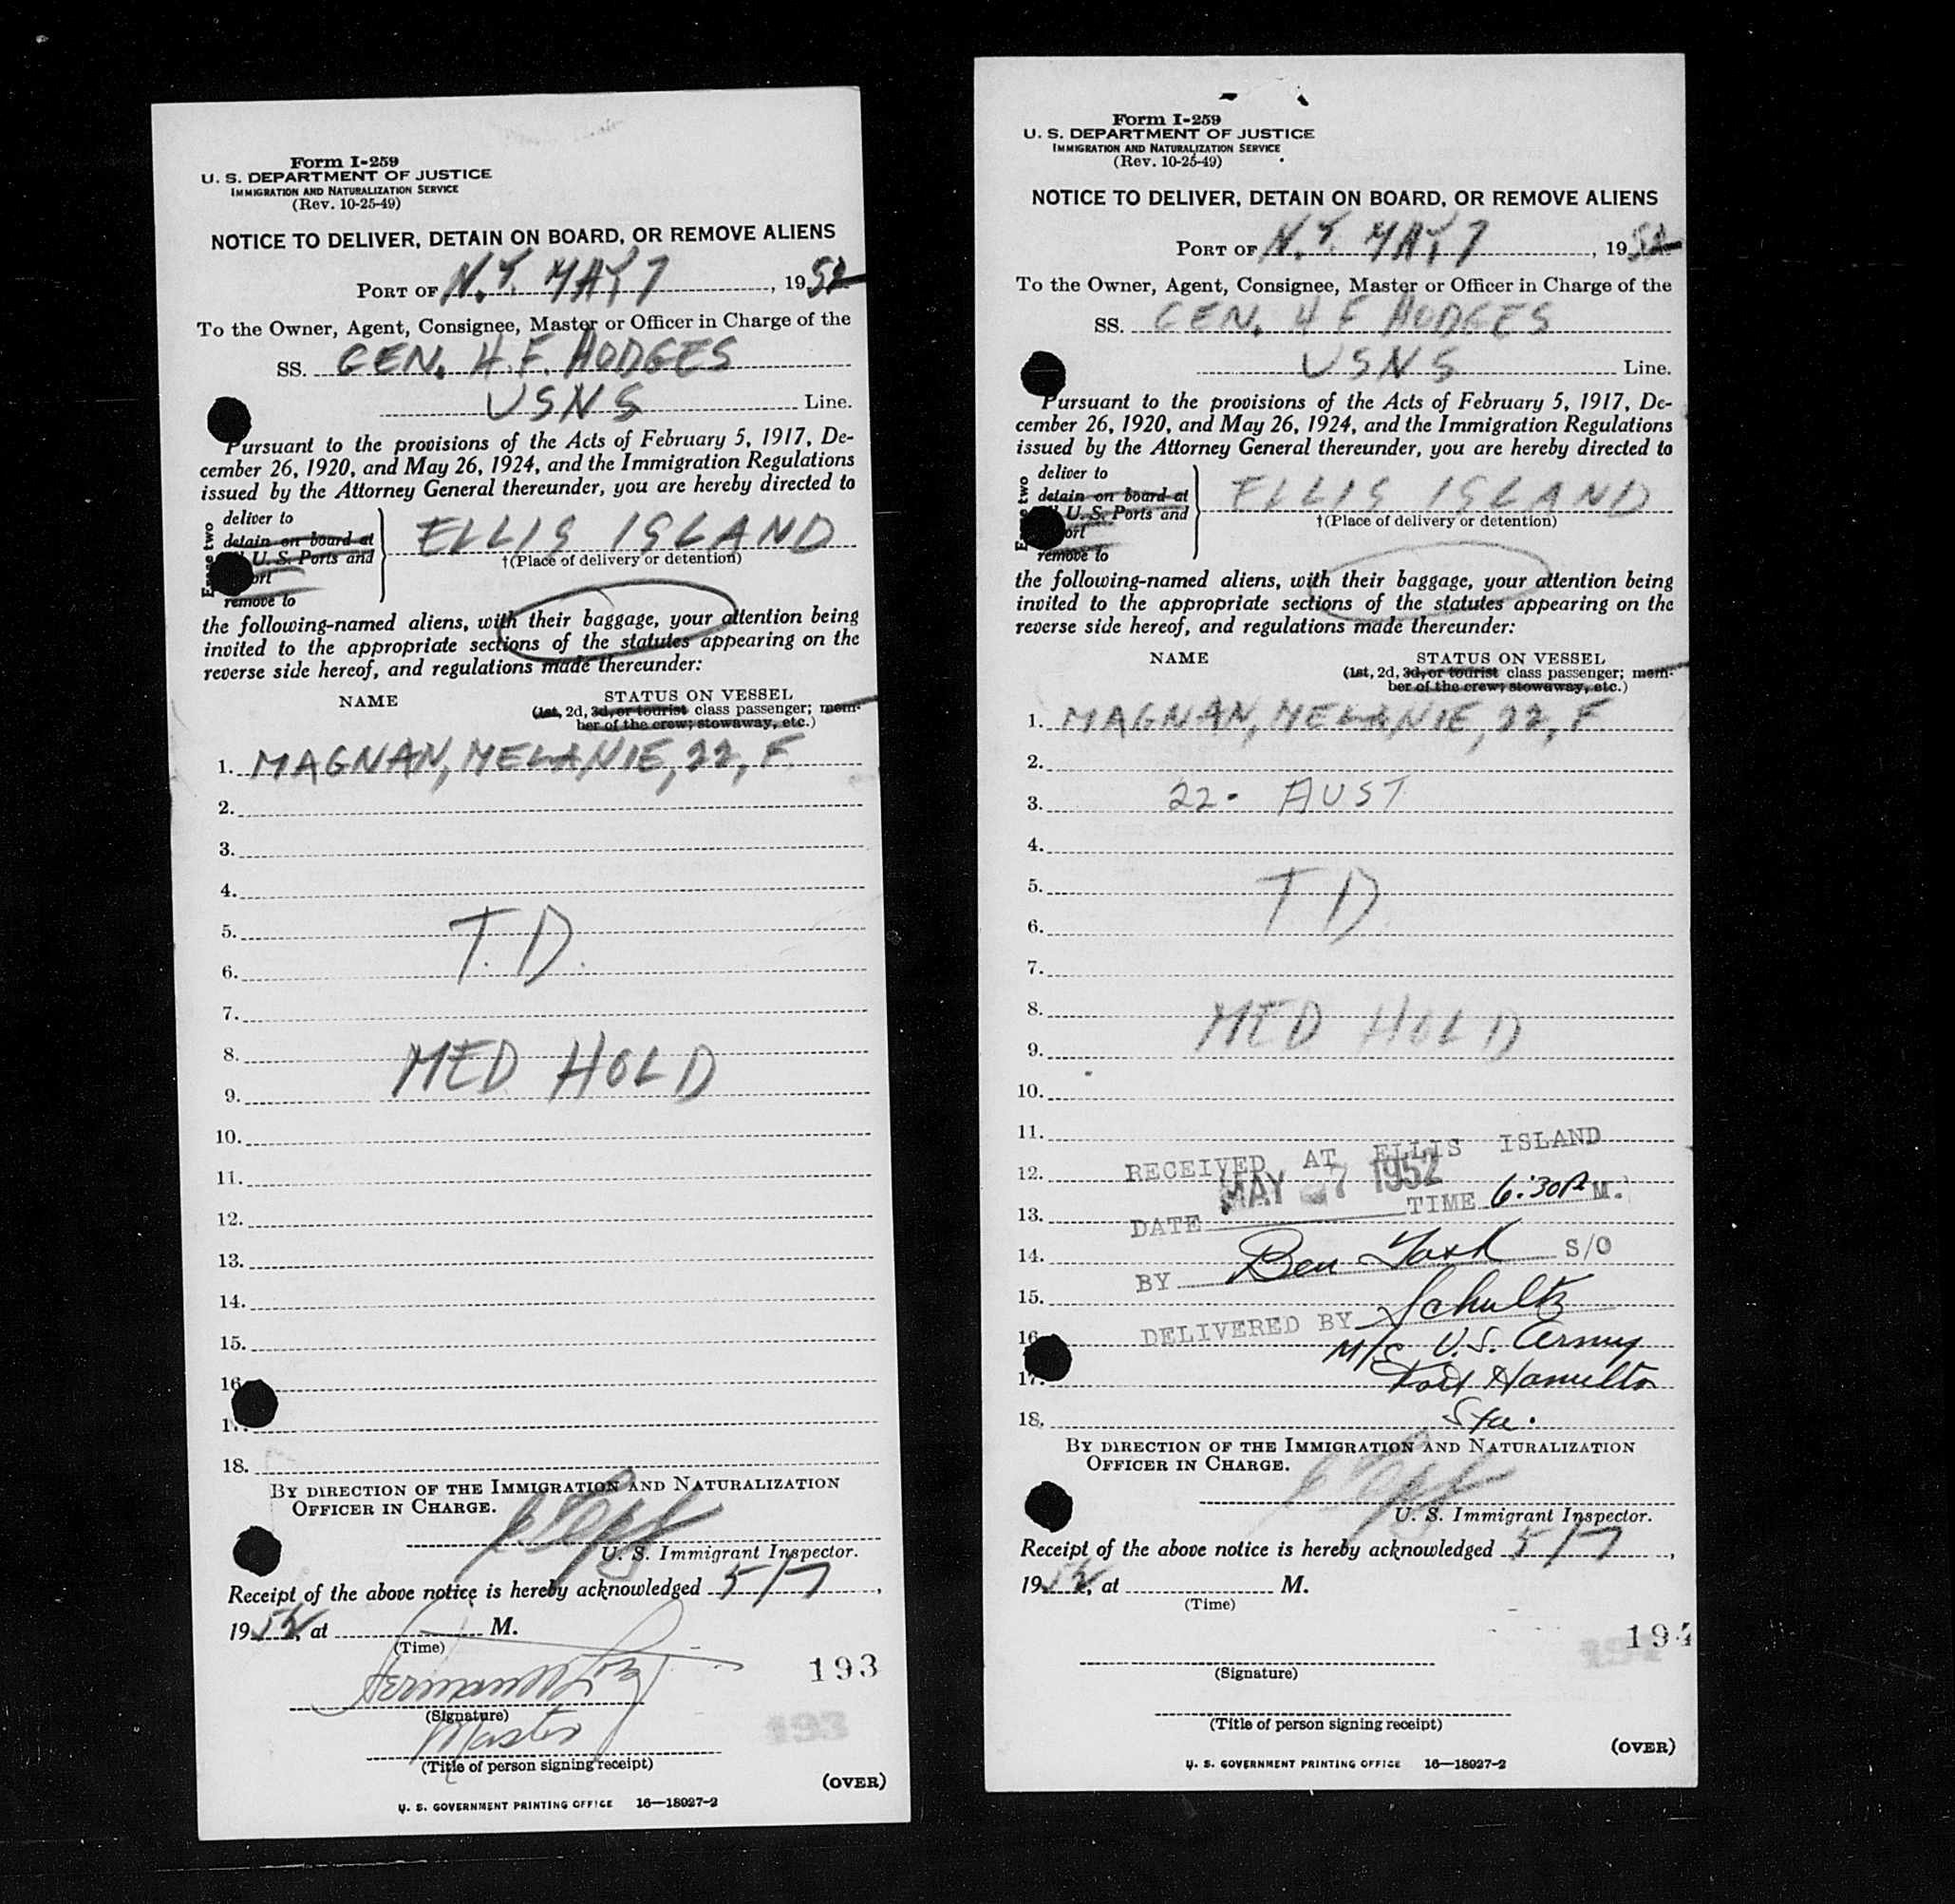 Form I-259
U. S. DEPARTMENT OF JUSTICE
IMMIGRATION AND NATURALIZATION SERVICE
(Rev. 10-25-49)
NOTICE TO DELIVER, DETAIN ON BOARD, OR REMOVE ALIENS
PORT OF N.Y. MAY 7, 1952
To the Owner, Agent, Consignee, Master or Officer in Charge of the
SS. GEN. H.F. HODGES
USNS Line.
Pursuant to the provisions of the Acts of February 5, 1917, De-
cember 26, 1920, and May 26, 1924, and the Immigration Regulations
issued by the Attorney General thereunder, you are hereby directed to
Erase two
deliver to
detain on board at
U. S. Ports and
remove to
ELLIS ISLAND
†(Place of delivery or detention)
the following-named aliens, with their baggage, your attention being
invited to the appropriate sections of the statutes appearing on the
reverse side hereof, and regulations made thereunder:
NAME STATUS ON VESSEL
(1st, 2d, 3d, or tourist class passenger; mem-
ber of the crew; stowaway, etc.)
1. MAGNAN, MELANIE, 22, F.
2.
3.
4.
5. T.D.
6.
7.
8. MED HOLD
9.
10.
11.
12.
13.
14.
15.
16
17.
18.
BY DIRECTION OF THE IMMIGRATION AND NATURALIZATION
OFFICER IN CHARGE.
U. S. Immigrant Inspector.
Receipt of the above notice is hereby acknowledged 5/7,
1952, at M.
(Time)
193
(Signature)
193
Master
(Title of person signing receipt)
(OVER)
U. S. GOVERNMENT PRINTING OFFICE 16—18027-2
Form I-259
U. S. DEPARTMENT OF JUSTICE
IMMIGRATION AND NATURALIZATION SERVICE
(Rev. 10-25-49)
NOTICE TO DELIVER, DETAIN ON BOARD, OR REMOVE ALIENS
PORT OF N.Y. MAY 7, 1952
To the Owner, Agent, Consignee, Master or Officer in Charge of the
SS. GEN. H F HODGES
USNS Line.
Pursuant to the provisions of the Acts of February 5, 1917, De-
cember 26, 1920, and May 26, 1924, and the Immigration Regulations
issued by the Attorney General thereunder, you are hereby directed to
deliver to
detain on board at
U. S. Ports and
remove to
ELLIS ISLAND
†(Place of delivery or detention)
the following-named aliens, with their baggage, your attention being
invited to the appropriate sections of the statutes appearing on the
reverse side hereof, and regulations made thereunder:
NAME STATUS ON VESSEL
(1st, 2d, 3d, or tourist class passenger; mem-
ber of the crew; stowaway, etc.)
1. MAGNAN, MELANIE, 22, F.
2.
3. 22- AUST
4.
5. T D.
6.
7.
8. MED HOLD
9.
10.
11.
12. RECEIVED AT ELLIS ISLAND
MAY 27 1952
13. DATE TIME 6:30 P. M.
14. BY Ben Yosh S/O
15. DELIVERED BY Schultz
16 M/S U.S. Army
17. Fort Hamilton
18. Sta.
BY DIRECTION OF THE IMMIGRATION AND NATURALIZATION
OFFICER IN CHARGE.
U. S. Immigrant Inspector.
Receipt of the above notice is hereby acknowledged 5/7,
1952, at M.
(Time)
194
(Signature)
(Title of person signing receipt)
(OVER)
U. S. GOVERNMENT PRINTING OFFICE 16—18027-2